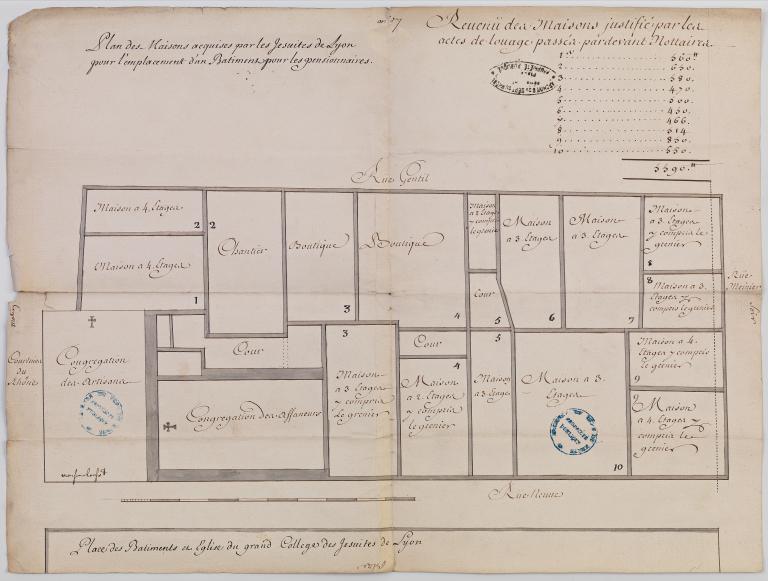 Plan des Maisons acquises par les Jesuites de Lyon
pour l'emplacement d'un Batiment pour les pensionnaires.
Revenü des Maisons justifié par les
actes de louage passés pardevant Nottaires
1 560"
2 650.
3 580.
4 470.
5 500
6 450.
7 466.
8 514
9 850.
10 550.
5590"
Rue Gentil
Maison a 4. Etages 2
Maison a 4. Etages 1
2 Chantier
Boutique 3
Boutique 4
Maison
a 2 Etages
y compris
le grenier
Cour 5
Maison
a 3. Etages 6
Maison
a 3. Etages 7
Maison
a 3 Etages
y compris le
grenier
8
8 Maison a 3.
Etages y
compris le grenier
Rue
Meinier
Courtines
du
Rhône
Congregation
des Artisans
Cour
Congregation des affaneurs
3
Maison
a 3 Etages
y compris
le grenier
Cour
4
Maison
a 2 Etages
y compris
le grenier
5
Maison
a 3 Etages
Maison a 3.
Etages
10
Maison a 4.
Etages y compris
le grenier
9
9
Maison
a 4. Etages y
compris le
grenier
Rue Neuve
Place des Batiments et Eglise du grand College des Jesuites de Lyon